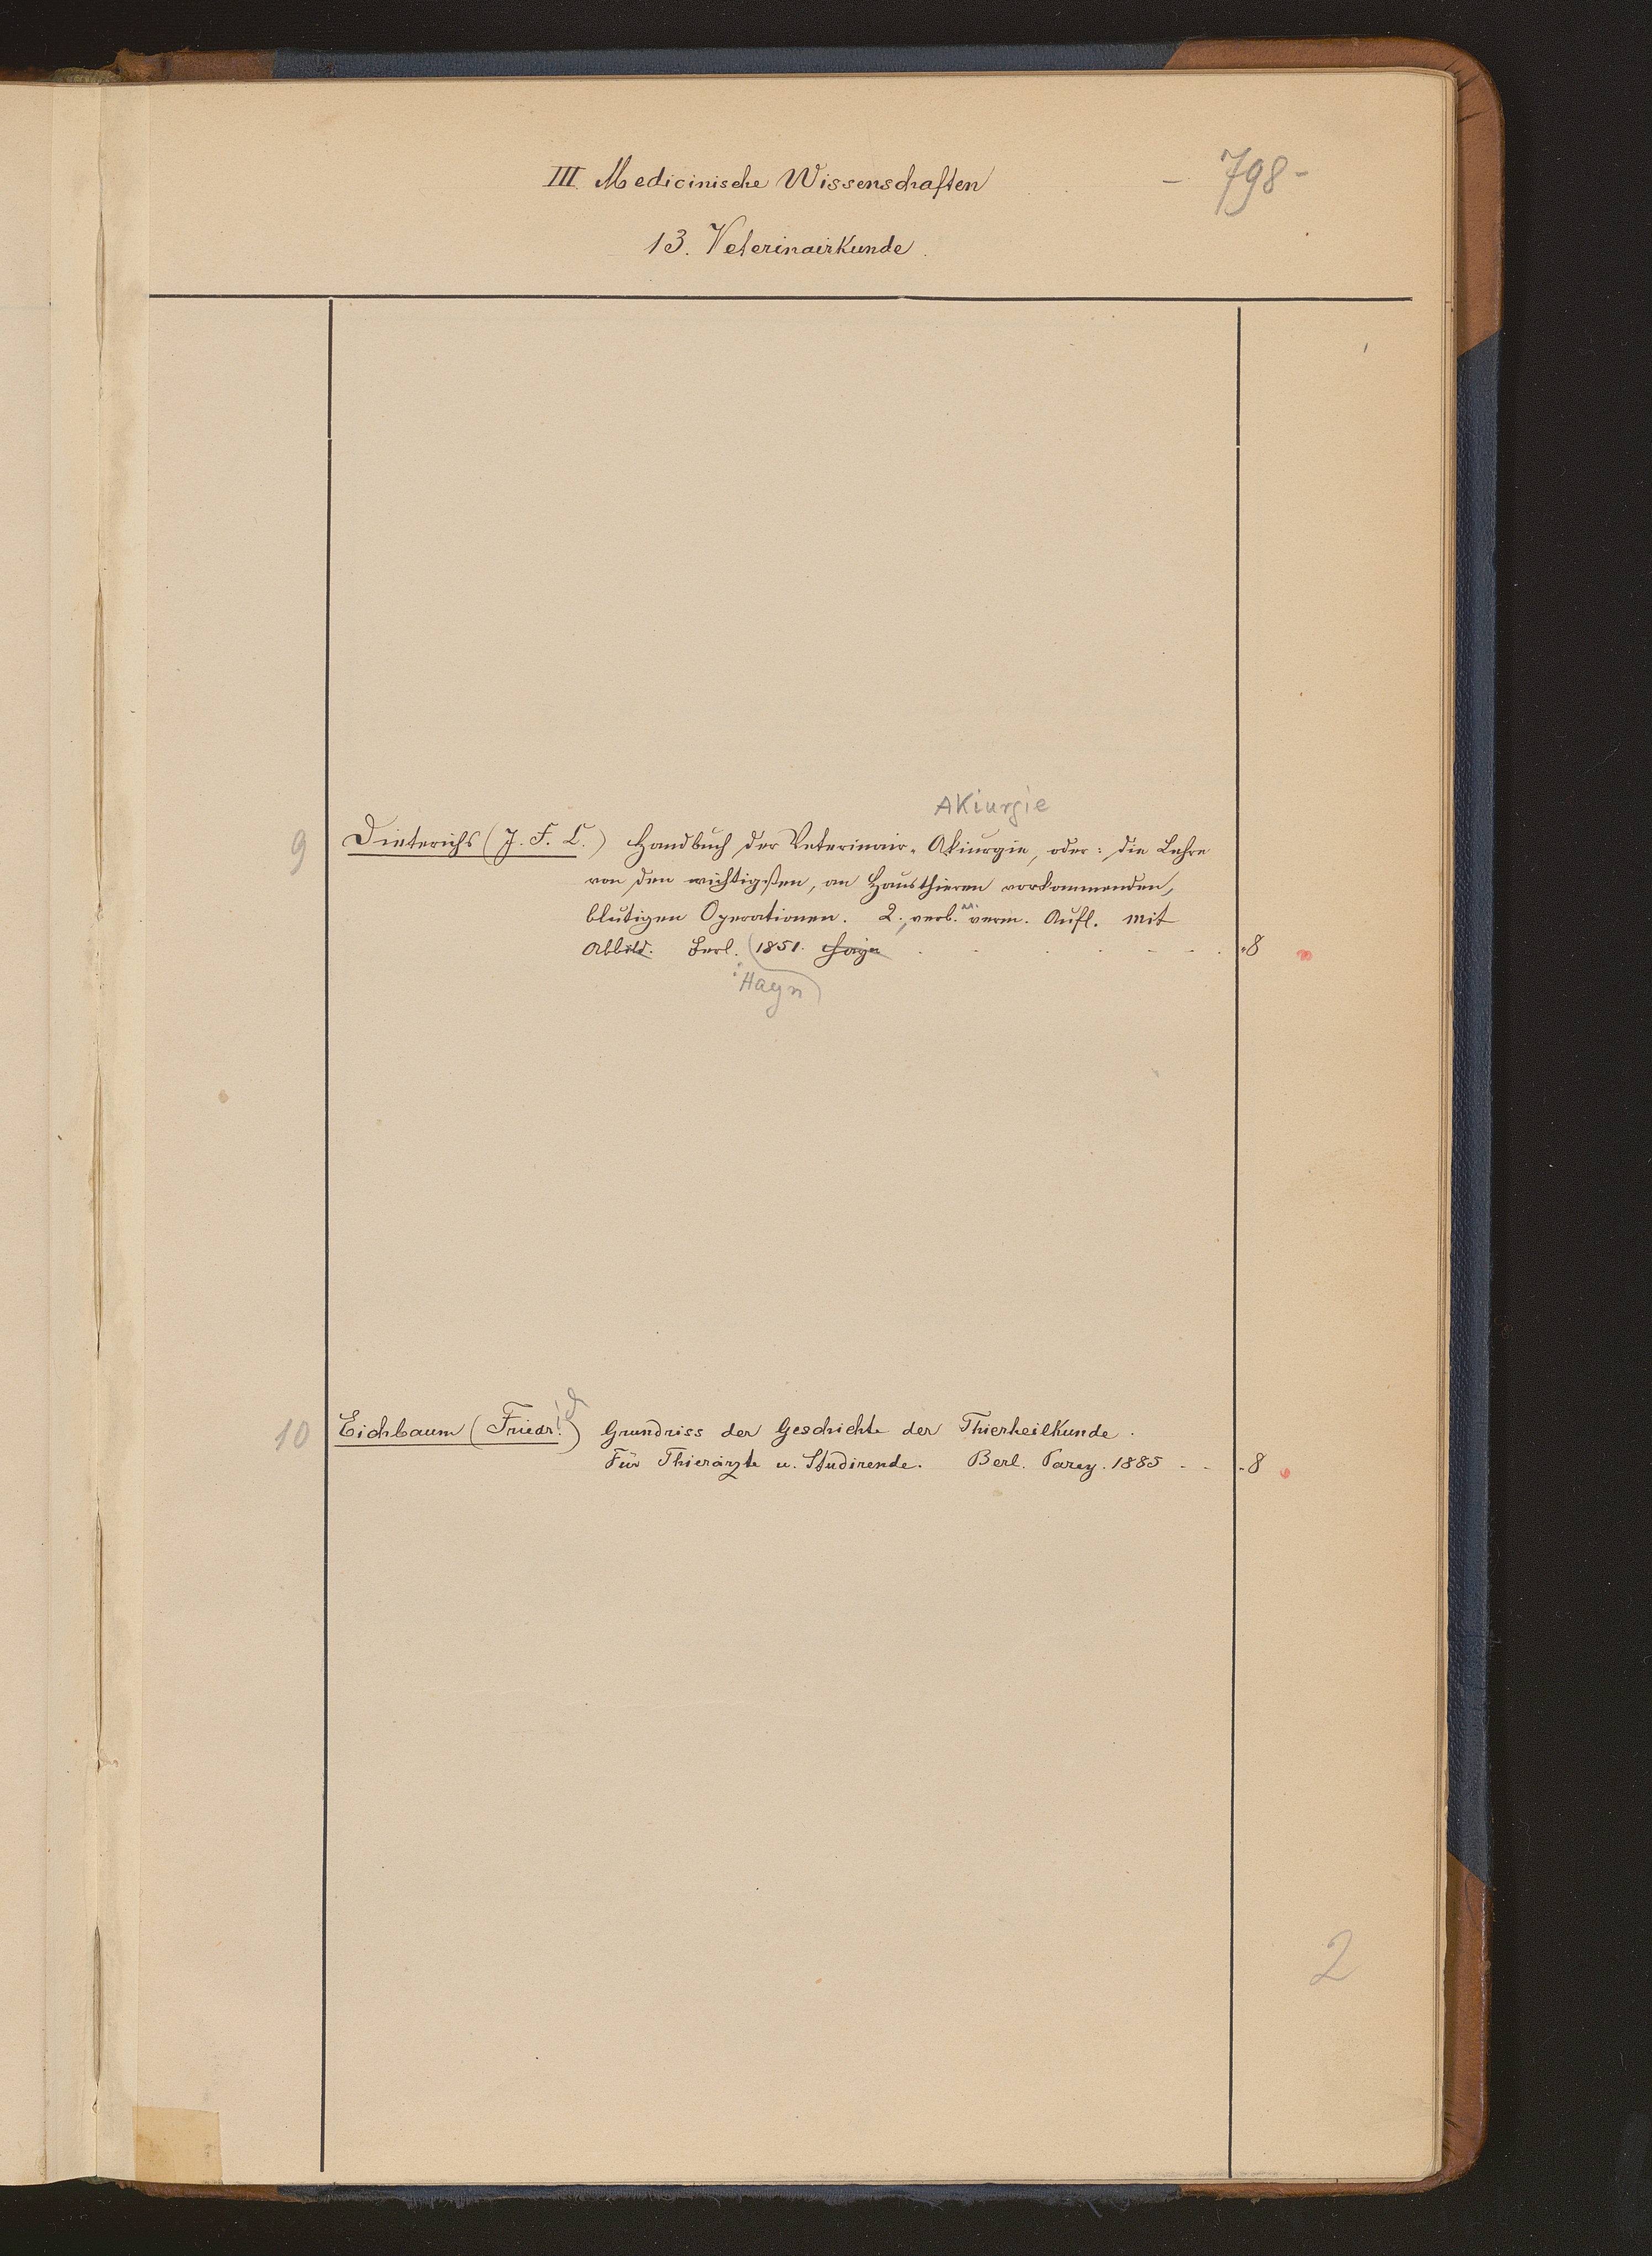 - 798 -
III. Medicinische Wissenschaften
13. Veterinairkunde.
AKiurgie
9 Dieterichs (J. F. C.) Handbuch der Veterinair-Akiurgie, oder: die Lehre
von den wichtigsten, an Hausthieren vorkommenden,
blutigen Operationen. 2., verb. u. verm. Aufl. Mit
Abbild. Berl. 1851. Hayn - 8
: Hayn
10 Eichbaum (Friedr.ich) Grundriss der Geschichte der Thierheilkunde.
Für Thierärzte u. Studirende. Berl. Parey. 1885 - - - 8
2